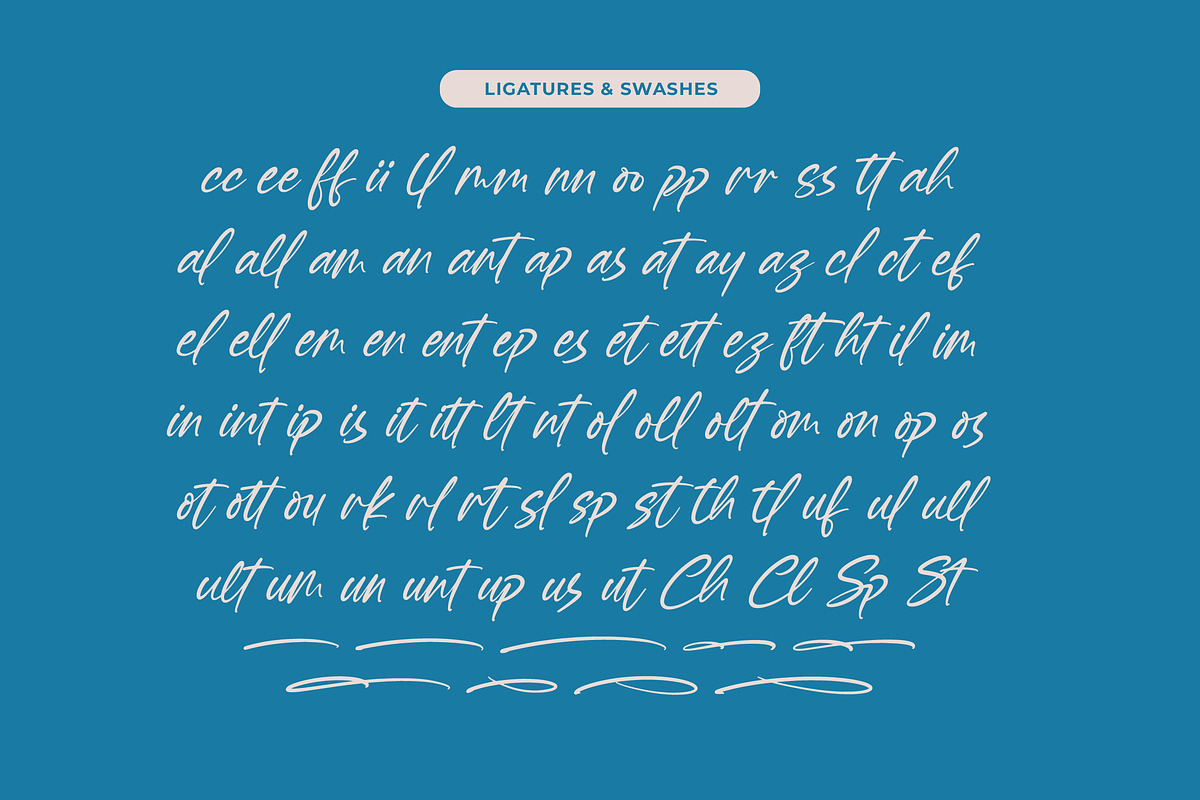 LIGATURES & SWASHES
cc ee ff ii ll mm nn oo pp rr ss tt ah
al all am an ant ap as at ay az cl ct ef
el ell em en ent ep es et ett ez ft ht il im
in int ip is it itt lt nt of oll olt om on op os
ot ott ou rk rl rt sl sp st th tl uf ul ull
ult um un unt up us ut Ch Cl Sp St